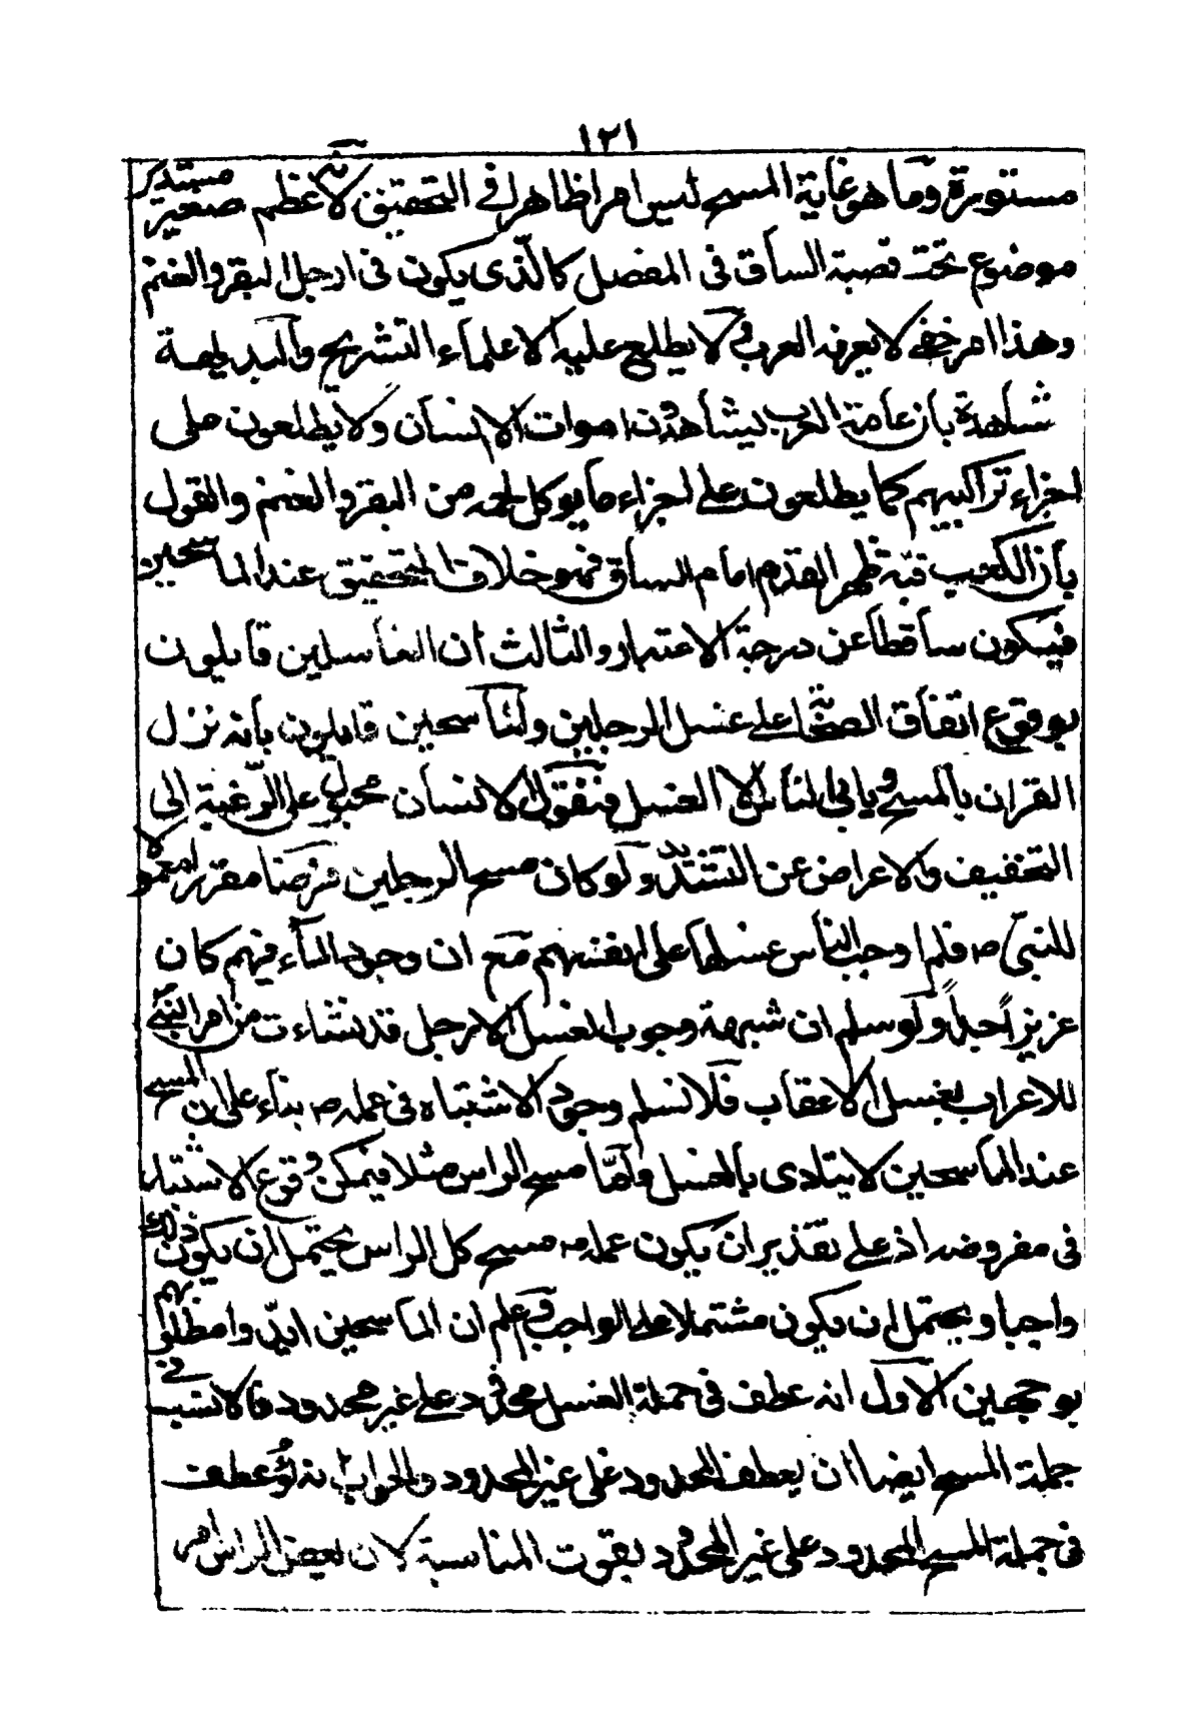 ١٢١
مستورة وما هو غاية المسح ليس امرا ظاهرا في التحقيق لانه عظم صغير مستدير
موضوع تحت قصبة الساق فى المفصل كالّذى يكون فى ارجل البقر والغنم
وهذا امر خفى لا يعرفه العرب و لا يطلع عليه الا علماء التشريح والبديهة
شاهدة بان عامة العرب يشاهدون اموات الانسان ولا يطلعون على
اجزاء تراكيبهم كما يطلعون على اجزاء ما يوكل لحمه من البقر والغنم والقول
بان الكعب قبة ظهر القدم امام الساق فهو خلاف التحقيق عند الماسحين
فيكون ساقطا عن درجة الاعتبار والثالث ان الغاسلين قايلون
بوقوع اتفاق الصحابة على غسل الرجلين والماسحين قايلون بانه نزل
القران بالمسح ويابى الناس الا الغسل فنقول الانسان مجبول على الرّغبة الى
التخفيف والاعراض عن التشدّد ولو كان مسح الرجلين فرضا مقررا معمولا
للنبىّ ص فلم اوجب الناس غسلها على انفسهم مع ان وجود الماء فيهم كان
عزيزاً جداً ولو سلم ان شبهة وجوب الغسل الارجل قد نشاءت من امر النبى
للاعراب بغسل الاعقاب فلا نسلم وجود الاشتباه فى عمله ص بناء على ان المسح
عند الماسحين لا يتادى بالغسل وامّا مسح الراس مثلا فيمكن وقوع الاشتباه
فى مفروضه اذ على تقدير ان يكون عمله ص مسح كل الراس يحتمل ان يكون ذلك
واجبا ويحتمل ان يكون مشتملا على الواجب و علم ان الماسحين ايدّوا مطلوبهم
بوجهين الاول انه عطف فى جملة الغسل محدود على غير محدود فالانسب فى
جملة المسح ايضا ان يعطف المحدود على غير المحدود والجواب انه لو عطف
فى جملة المسح المحدود على غير المحدود يفوت المناسبة لان بعض الراس امر